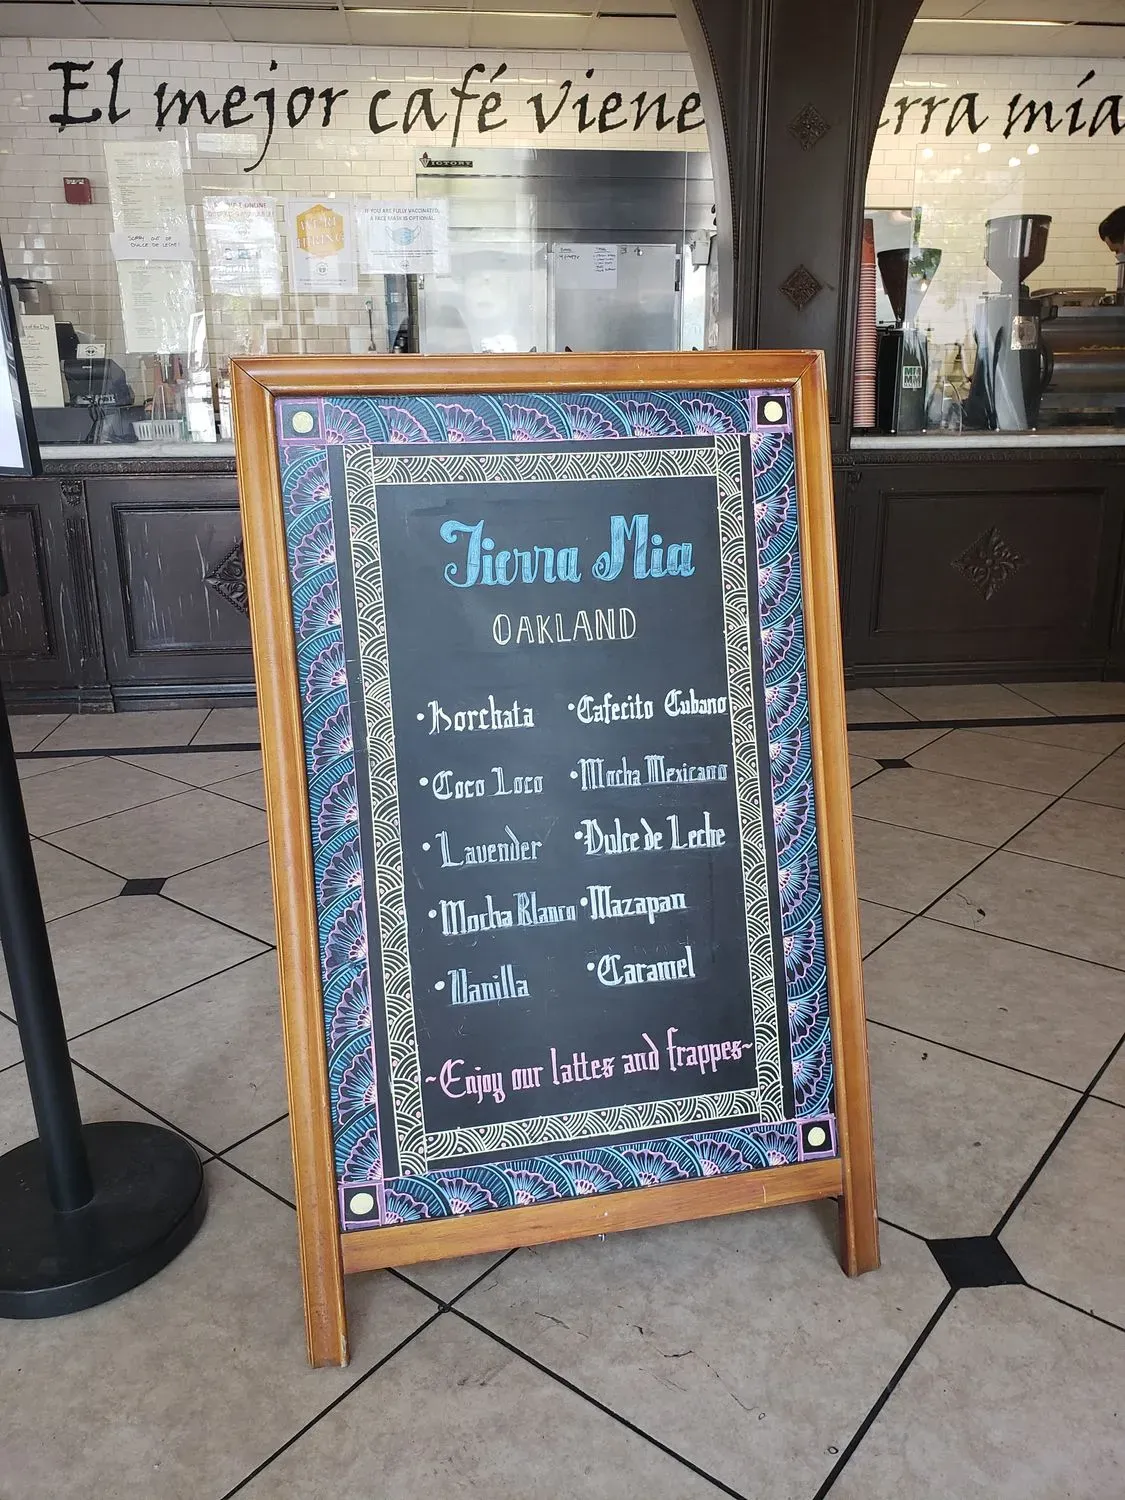 El mejor café viene
rra mía
VICTORY
SORRY OUT OF
DULCE DE LECHE!
WE'RE
HIRING
IF YOU ARE FULLY VACCINATED,
A FACE MASK IS OPTIONAL.
Tierra Mia
OAKLAND
•Horchata •Cafecito Cubano
•Coco Loco •Mocha Mexicano
•Lavender •Dulce de Leche
•Mocha Blanco •Mazapan
•Vanilla •Caramel
~Enjoy our lattes and frappes~